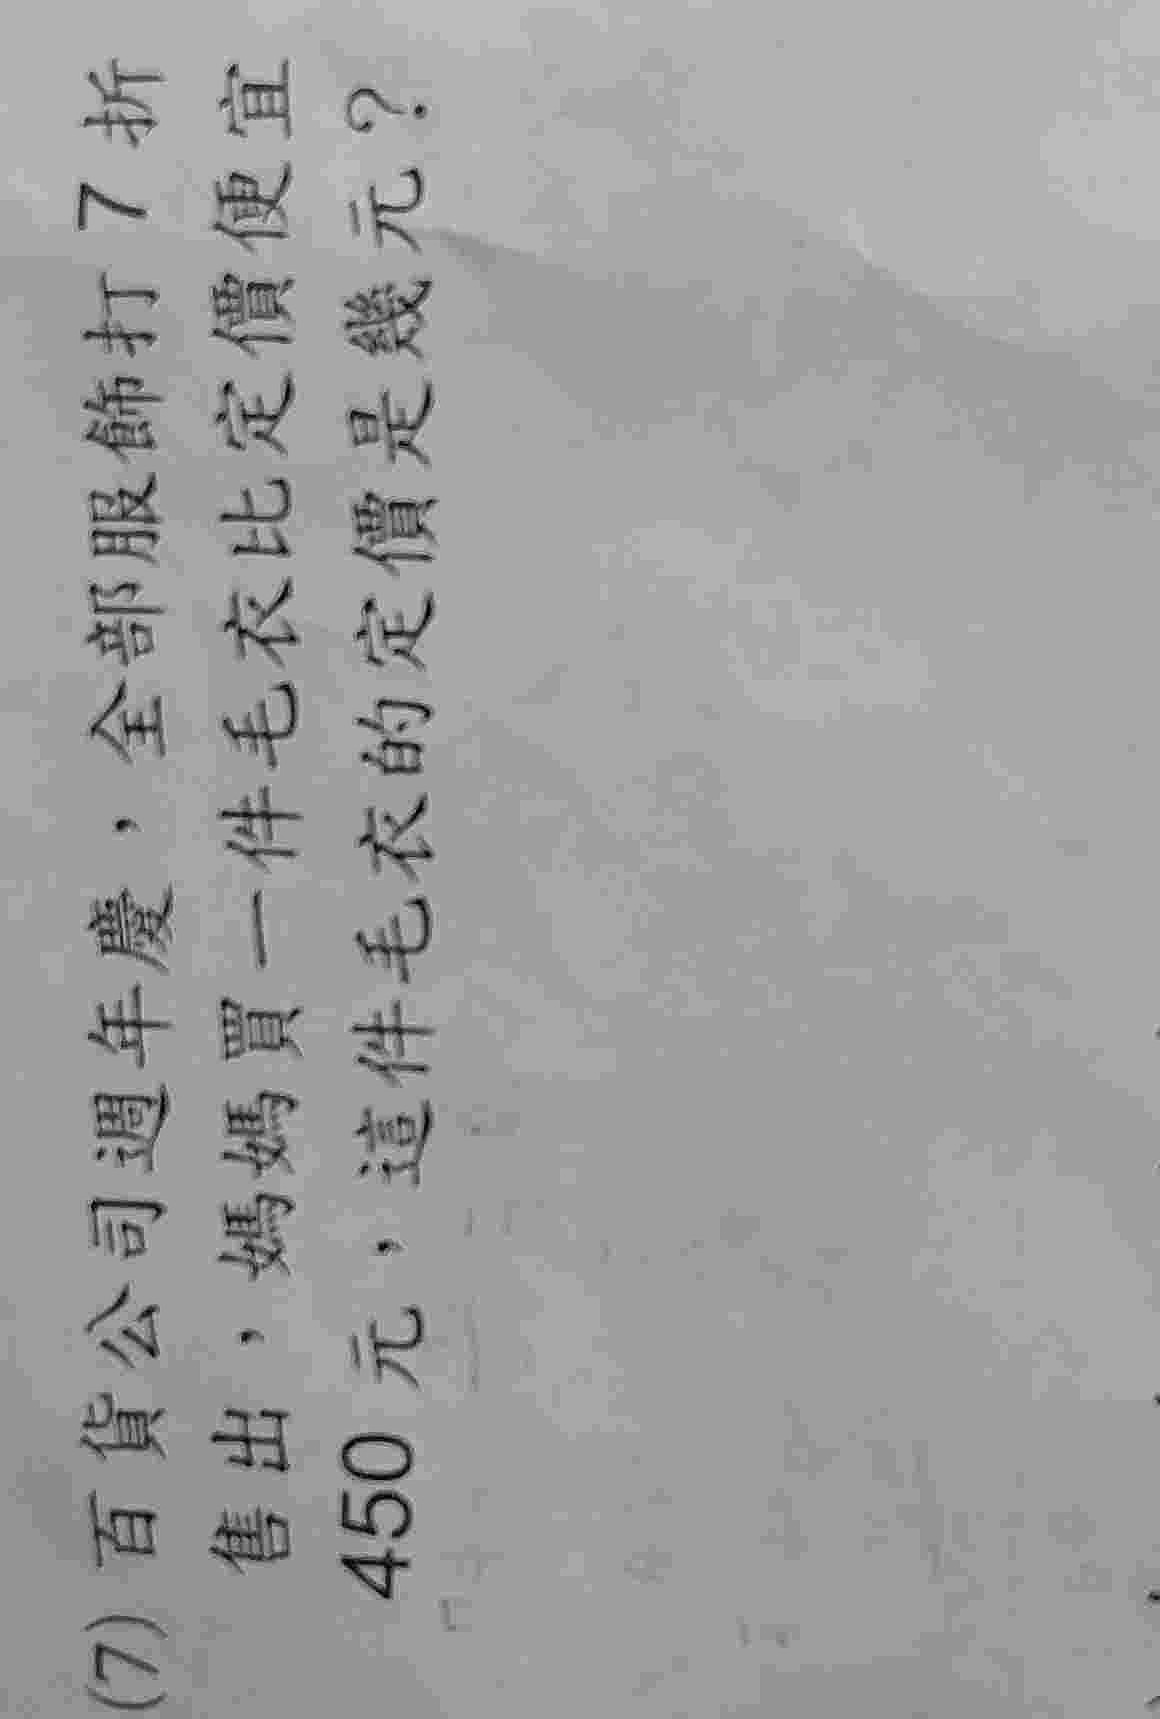 (7) 百貨公司週年慶，全部服飾打 7 折
售出，媽媽買一件毛衣比定價便宜
450 元，這件毛衣的定價是幾元？